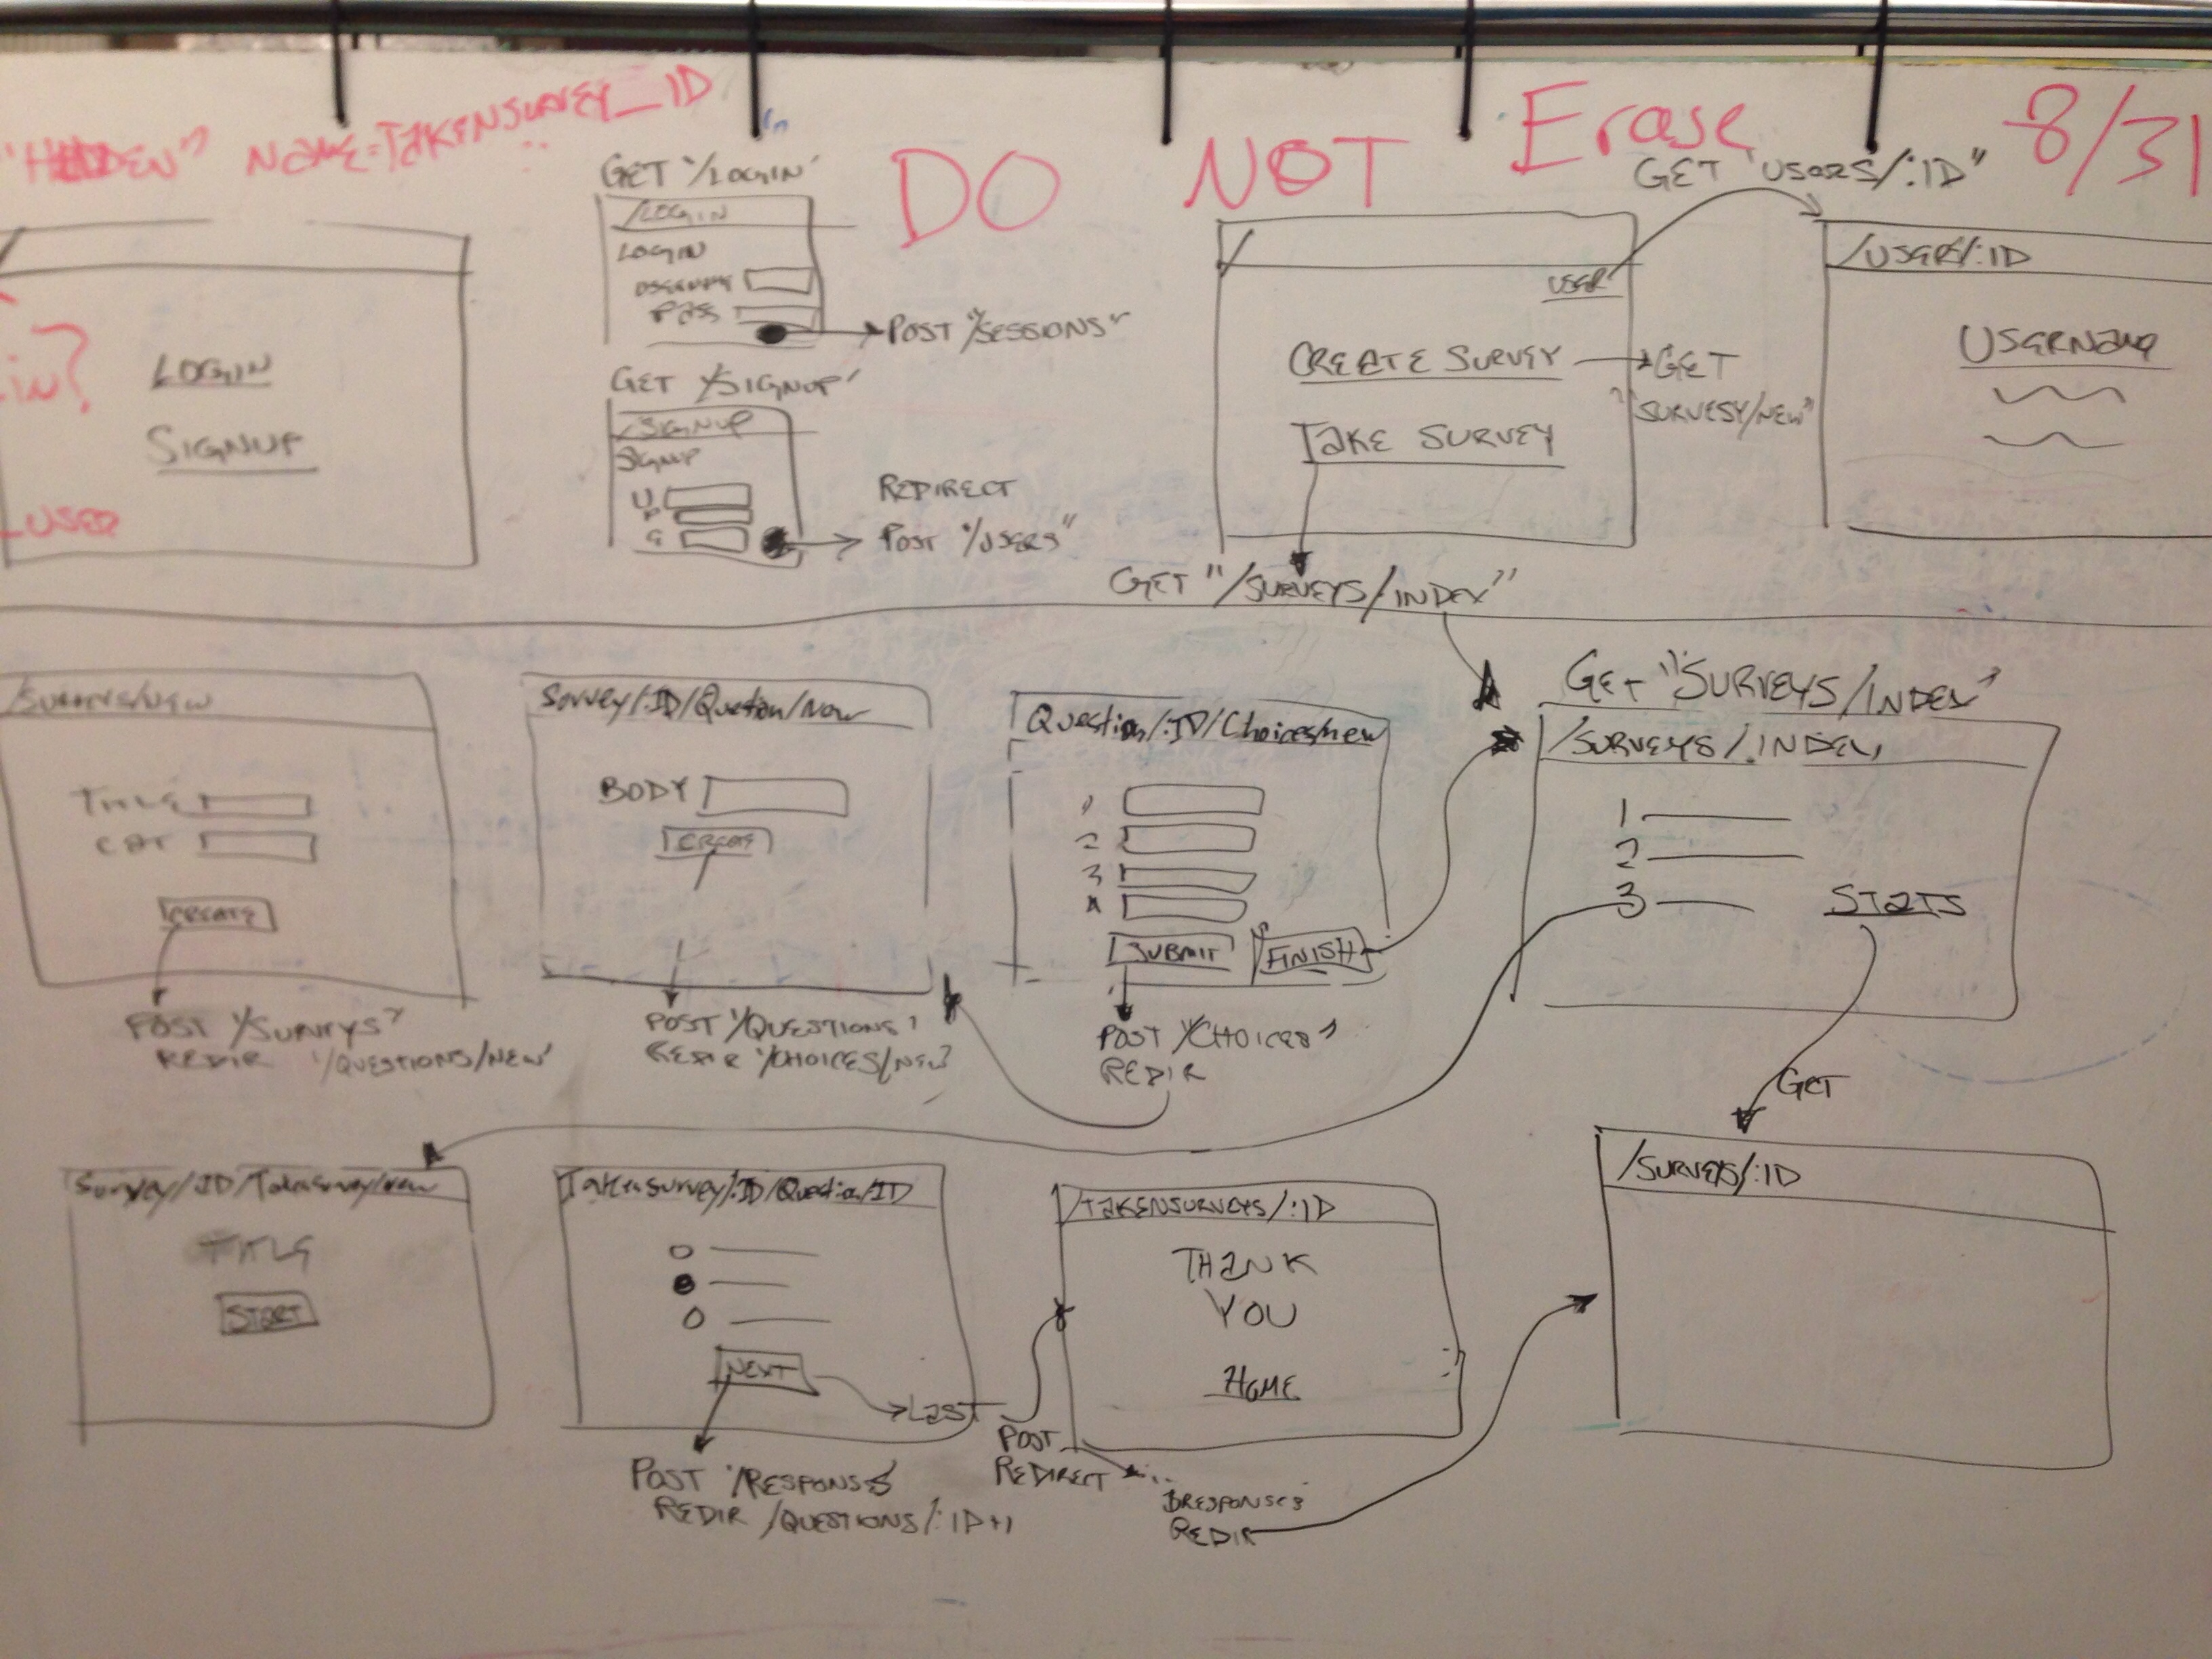 "HIDDEN" NAME=TAKENSURVEY_ID
DO NOT Erase 8/31
in?
_USER
/
LOGIN
SIGNUP
GET "/LOGIN'
/LOGIN
LOGIN
USERNAME
PASS
POST "/SESSIONS"
GET "/SIGNUP'
/SIGNUP
SIGNUP
U
P
E
REDIRECT
POST "/USERS"
/
USER
CREATE SURVEY
GET
"SURVESY/NEW"
TAKE SURVEY
GET "/SURVEYS/INDEX"
GET "USERS/:ID"
/USERS/:ID
USERNAME
/SURVEYS/NEW
TITLE
CAT
CREATE
POST "/SURVYS"
REDIR '/QUESTIONS/NEW'
Survey/:ID/Question/New
BODY
CREATE
POST "/QUESTIONS'
REDIR "/CHOICES/NEW"
Question/:ID/Choices/new
1
2
3
4
SUBMIT
FINISH
POST "/CHOICES"
REDIR
GET "SURVEYS/INDEX"
/SURVEYS/INDEX
1
2
3
STATS
GET
Survey/:ID/Takensurvey/new
TITLE
START
Takensurvey/:ID/Question/ID
NEXT
LAST
POST "/RESPONSES
REDIR /QUESTIONS/:ID+1
/TAKENSURVEYS/:ID
THANK
YOU
HOME
POST
REDIRECT
RESPONSES
REDIR
/SURVEYS/:ID